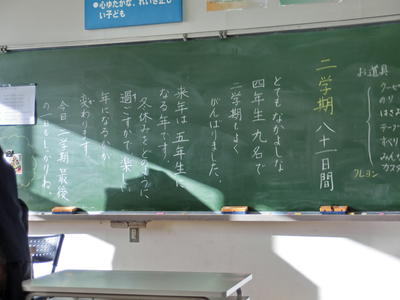 心ゆたかな、れいぎ正し
い子ども
二学期 八十一日間
とてもなかよしな
四年生 九名で
二学期もよく
がんばりました。
来年は五年生に
なる年です。
冬休みをどのように
過ごすかで、楽しい
年になるかが
変わります。
今日 二学期 最後
の一日もしっかりね。
お道具
のり
はさみ
クレヨン